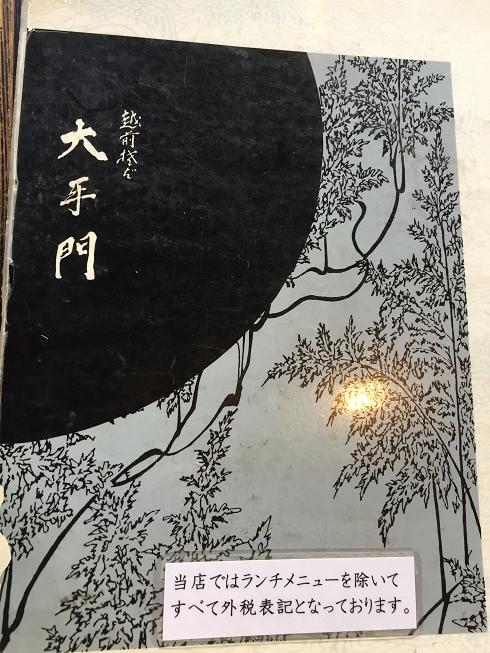 越前そば
大手門
当店ではランチメニューを除いて
すべて外税表記となっております。